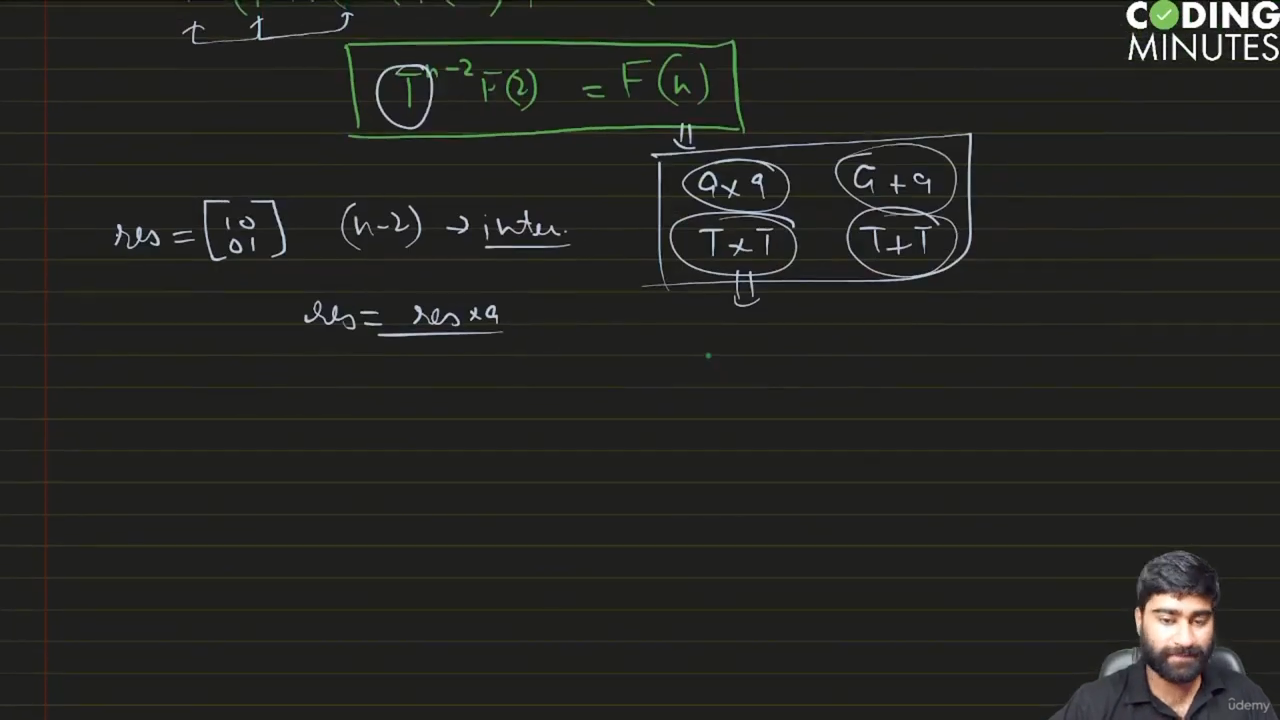 CODING
MINUTES
T^n-2 F(2) = F(n)
a x a   a + a
T x T   T + T
res = [1 0
0 1]   (n-2) → inter.
res = res x a
ûdemy